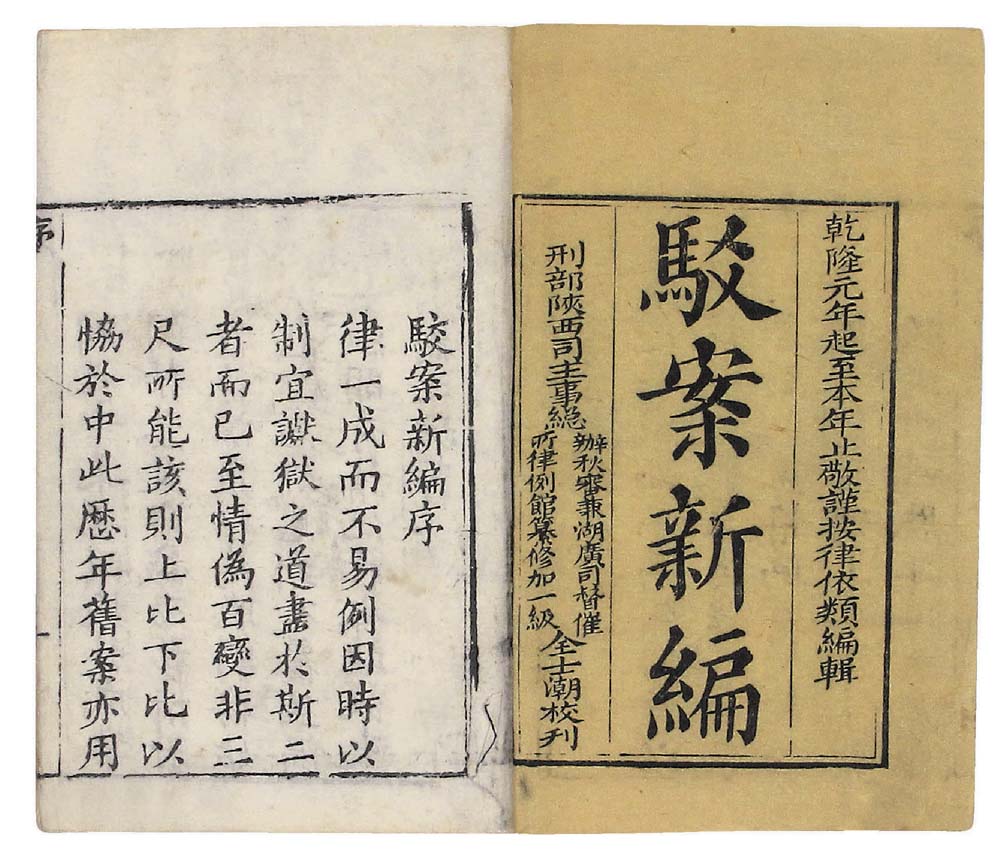 乾隆元年起至本年止敬謹按律依類編輯
駁案新編
刑部陝西司主事總
辦秋審兼湖廣司督催
所律例館纂修加一級
全士潮校刋
駮案新編序
律一成而不易例因時以
制宜讞獄之道盡於斯二
者而已至情僞百變非三
尺所能該則上比下比以
恊於中此歷年舊案亦用
序
一